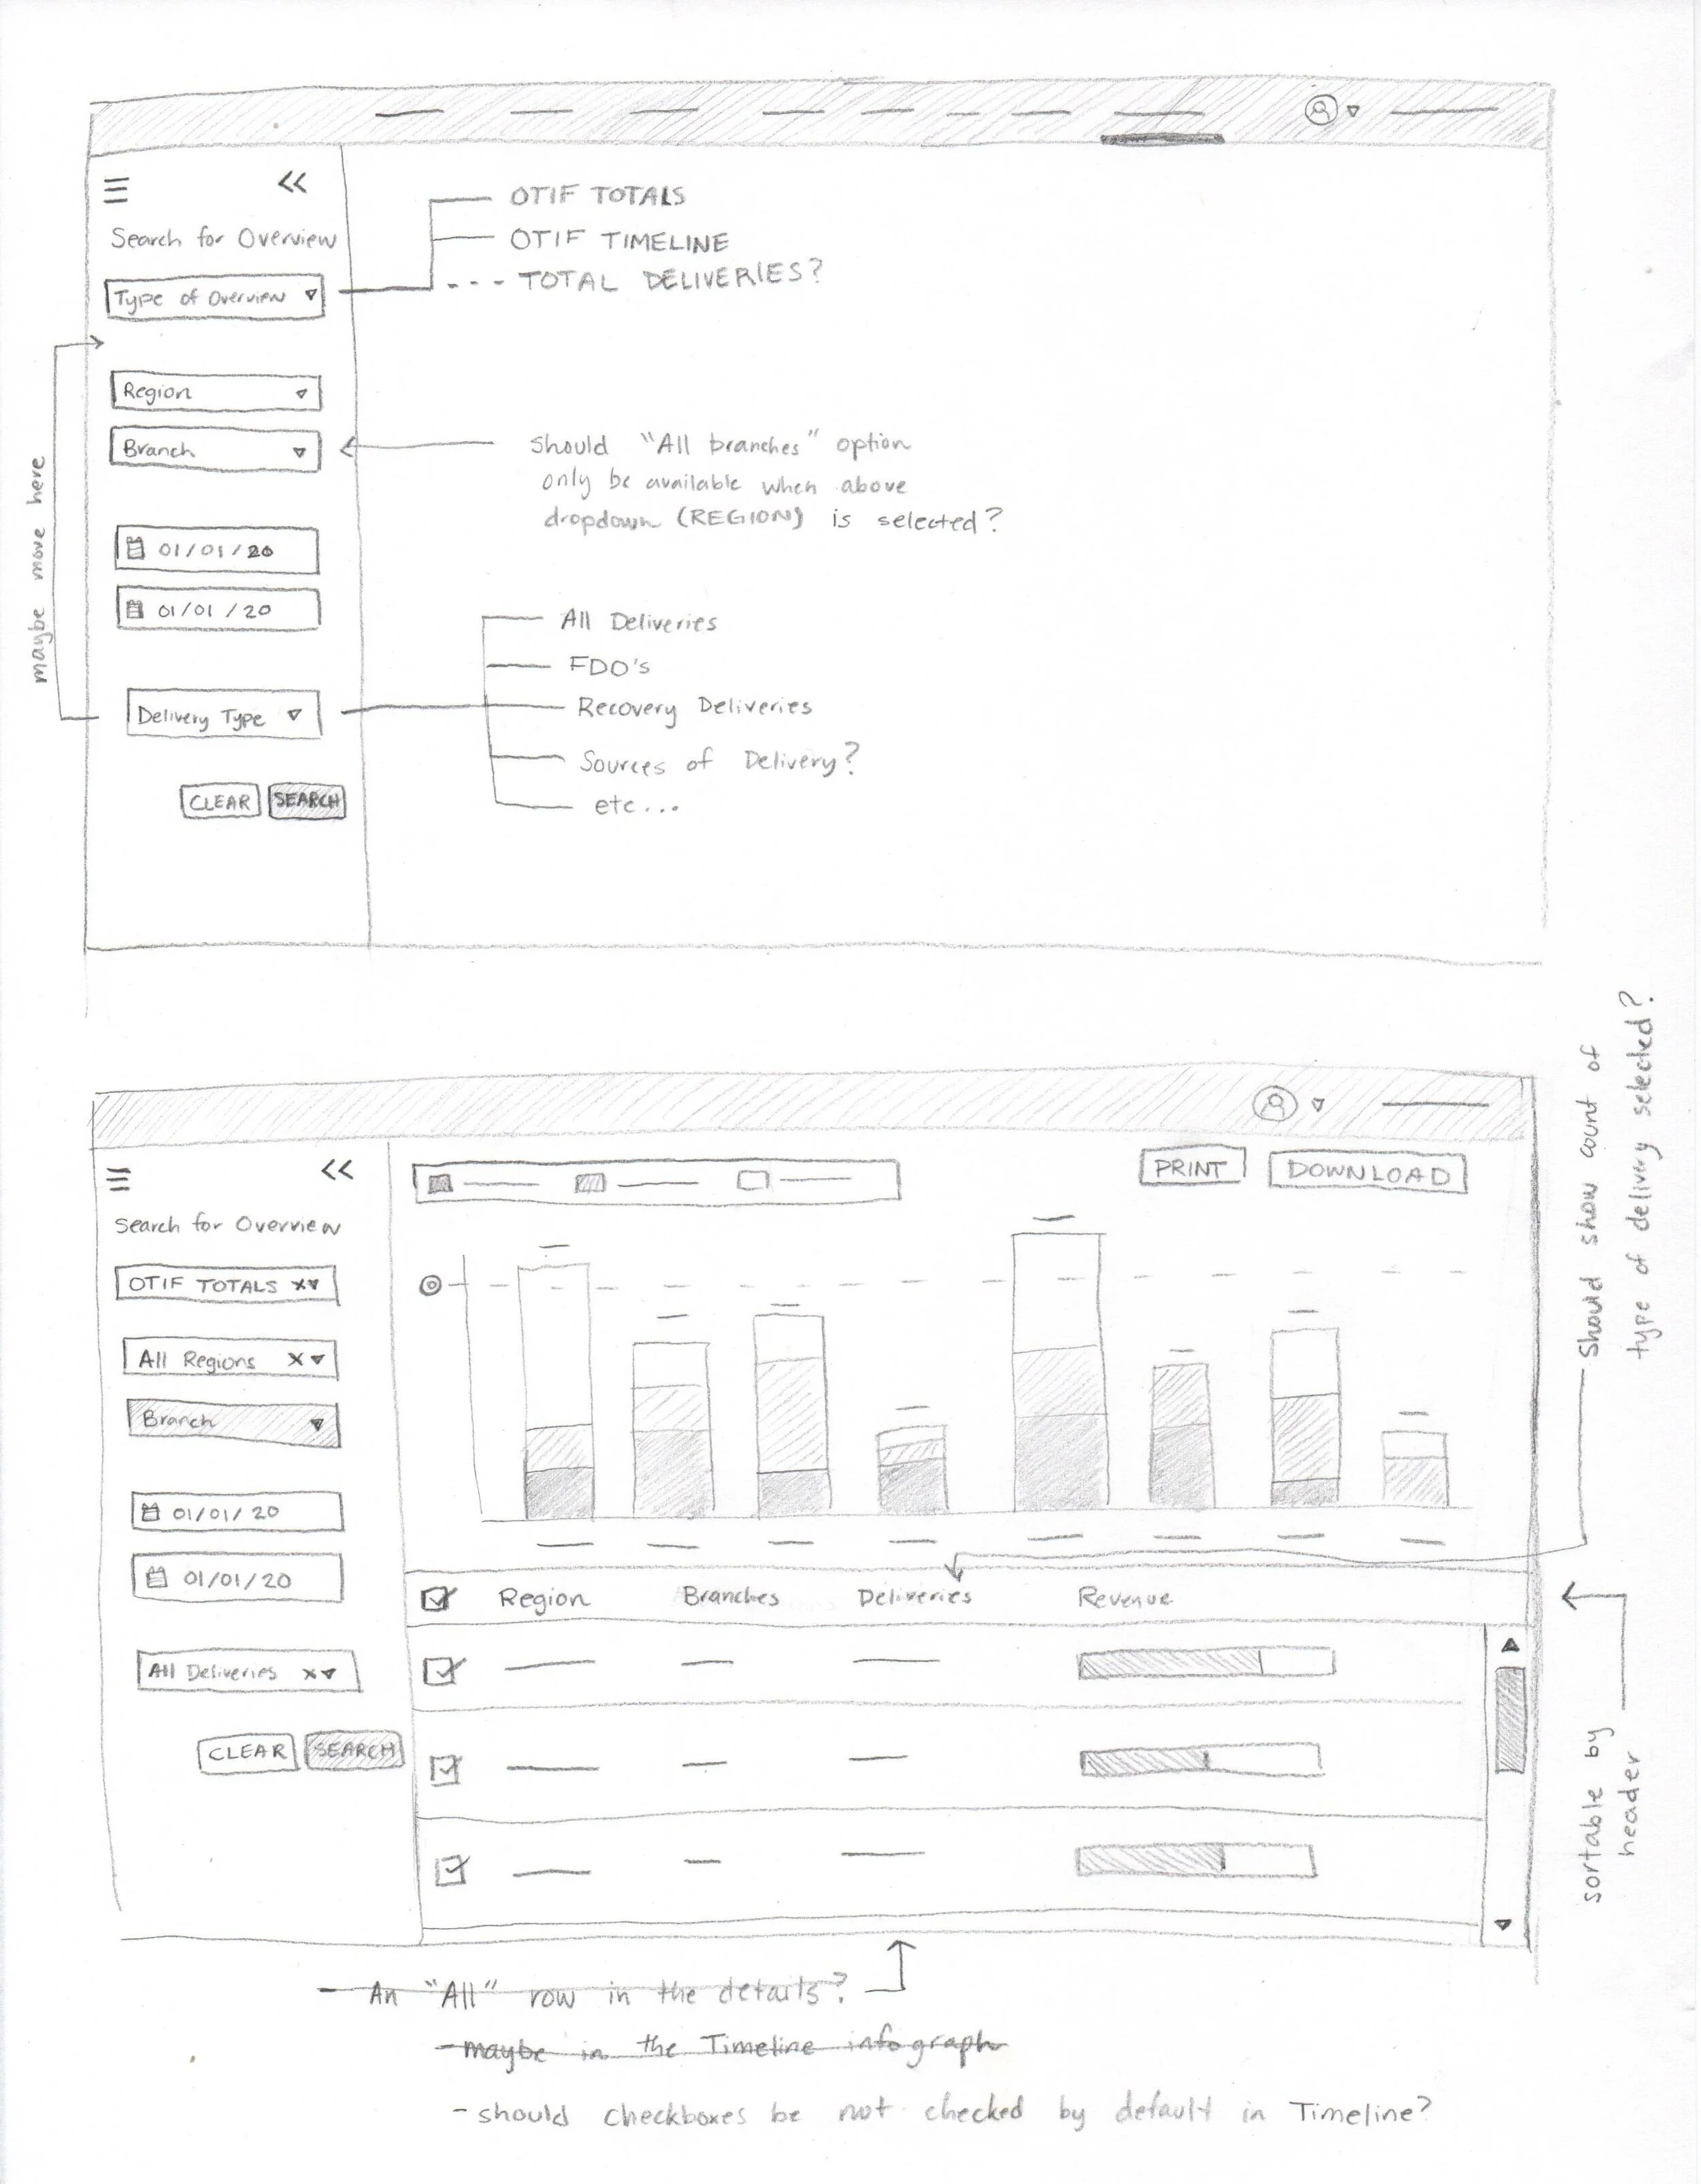 Search for Overview
Type of Overview
OTIF TOTALS
OTIF TIMELINE
--- TOTAL DELIVERIES?
Region
Branch
should "All branches" option
only be available when above
dropdown (REGION) is selected?
maybe move here
01/01/20
01/01/20
Delivery Type
All Deliveries
FDO's
Recovery Deliveries
Sources of Delivery?
etc...
CLEAR SEARCH
Search for Overview
OTIF TOTALS x
All Regions x
Branch
01/01/20
01/01/20
All Deliveries x
CLEAR SEARCH
PRINT DOWNLOAD
Region Branches Deliveries Revenue
Should show count of
type of delivery selected?
sortable by
header
- An "All" row in the details?
- maybe in the Timeline infograph
- should checkboxes be not checked by default in Timeline?